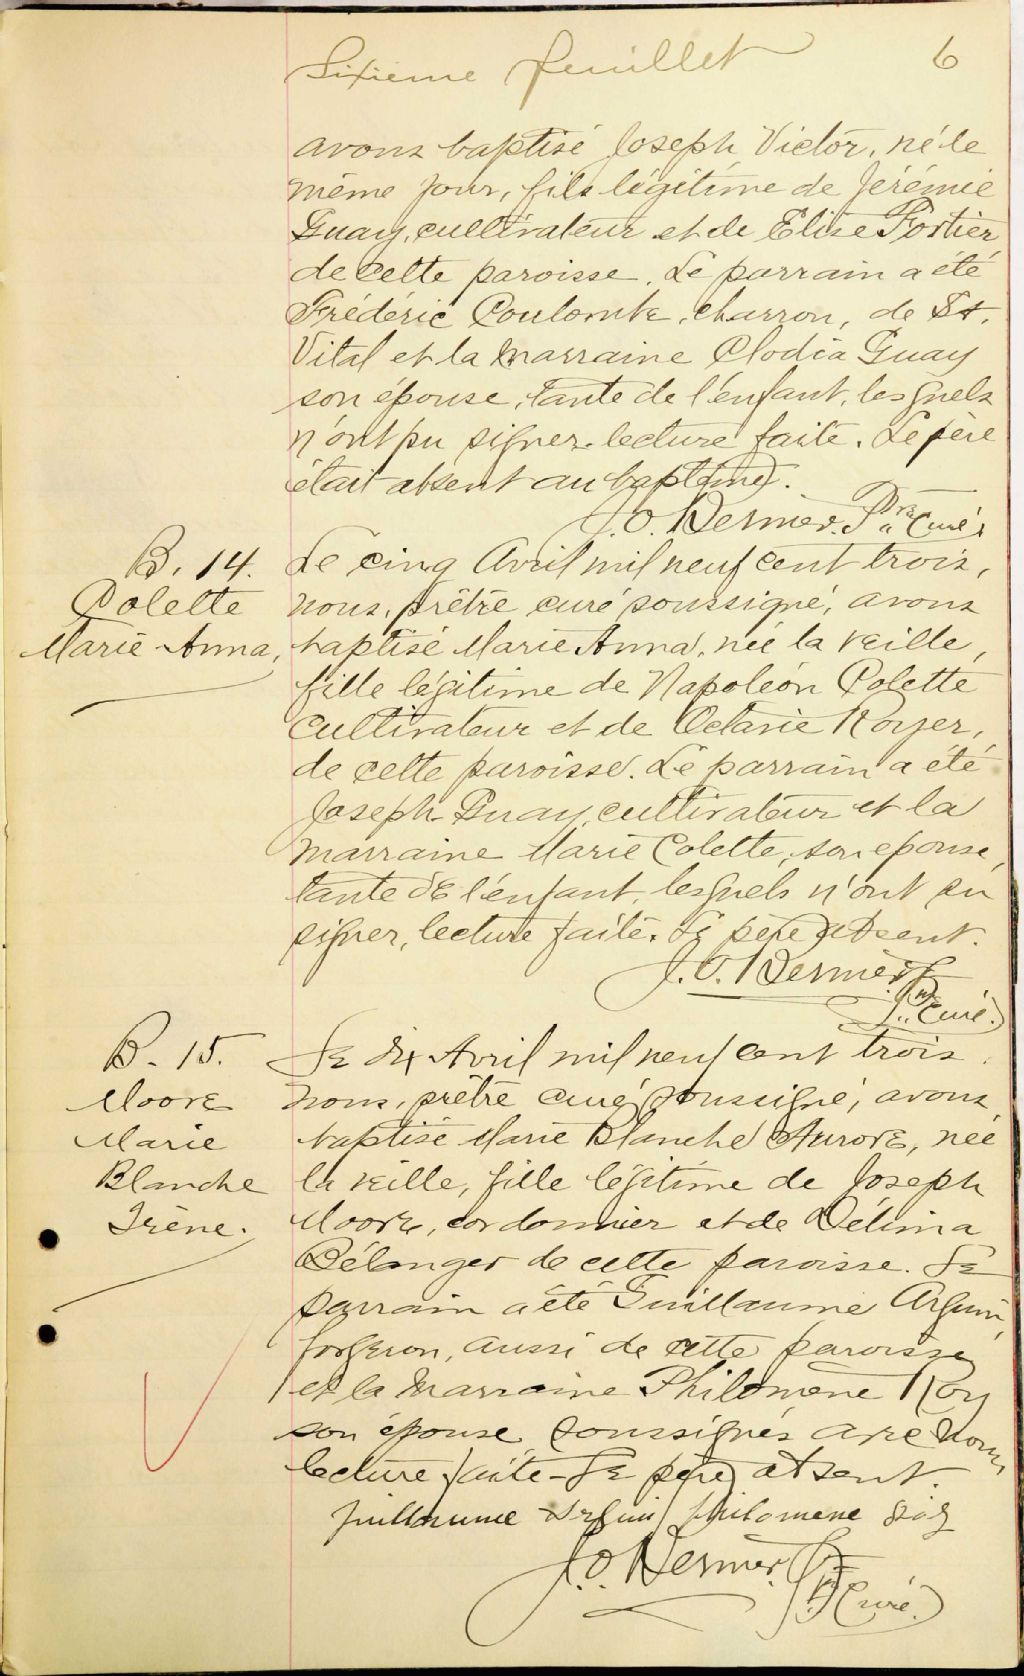 Sixième feuillet 6
avons baptisé Joseph Victor, né le
même jour, fils légitime de Jérémie
Guay, cultivateur et de Elise Fortier
de cette paroisse. Le parrain a été
Frédéric Coulombe, charron, de St.
Vital et la marraine Clodia Guay
son épouse, tante de l'enfant, lesquels
n'ont pu signer lecture faite. Le père
était absent au baptême.
J. O. Bernier, Ptre Curé
B. 14.
Colette
Marie Anna,
Le cinq Avril mil neuf cent trois,
nous, prêtre curé soussigné, avons
baptisé Marie Anna, née la veille,
fille légitime de Napoléon Colette
cultivateur et de Octavie Royer,
de cette paroisse. Le parrain a été
Joseph Guay, cultivateur et la
marraine Marie Colette, son épouse,
tante de l'enfant, lesquels n'ont su
signer, lecture faite. Le père absent.
J. O. Bernier
Ptre Curé.
B. 15.
Moore
Marie
Blanche
Irène.
Le dix Avril mil neuf cent trois,
nous, prêtre curé soussigné, avons
baptisé Marie Blanche Aurore, née
la veille, fille légitime de Joseph
Moore, cordonnier et de Délima
Bélanger de cette paroisse. Le
parrain a été Guillaume Arguin,
forgeron, aussi de cette paroisse
et la marraine Philomène Roy
son épouse soussignés avec nous
lecture faite - Le père absent.
guillaume arguin philomene
J. O. Bernier Ptre
Curé.